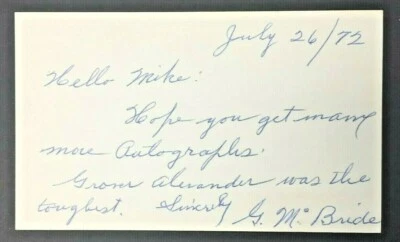 July 26/72
Hello Mike:
Hope you get many
more Autographs.
Grover Alexander was the
toughest. Sincerely G. McBride